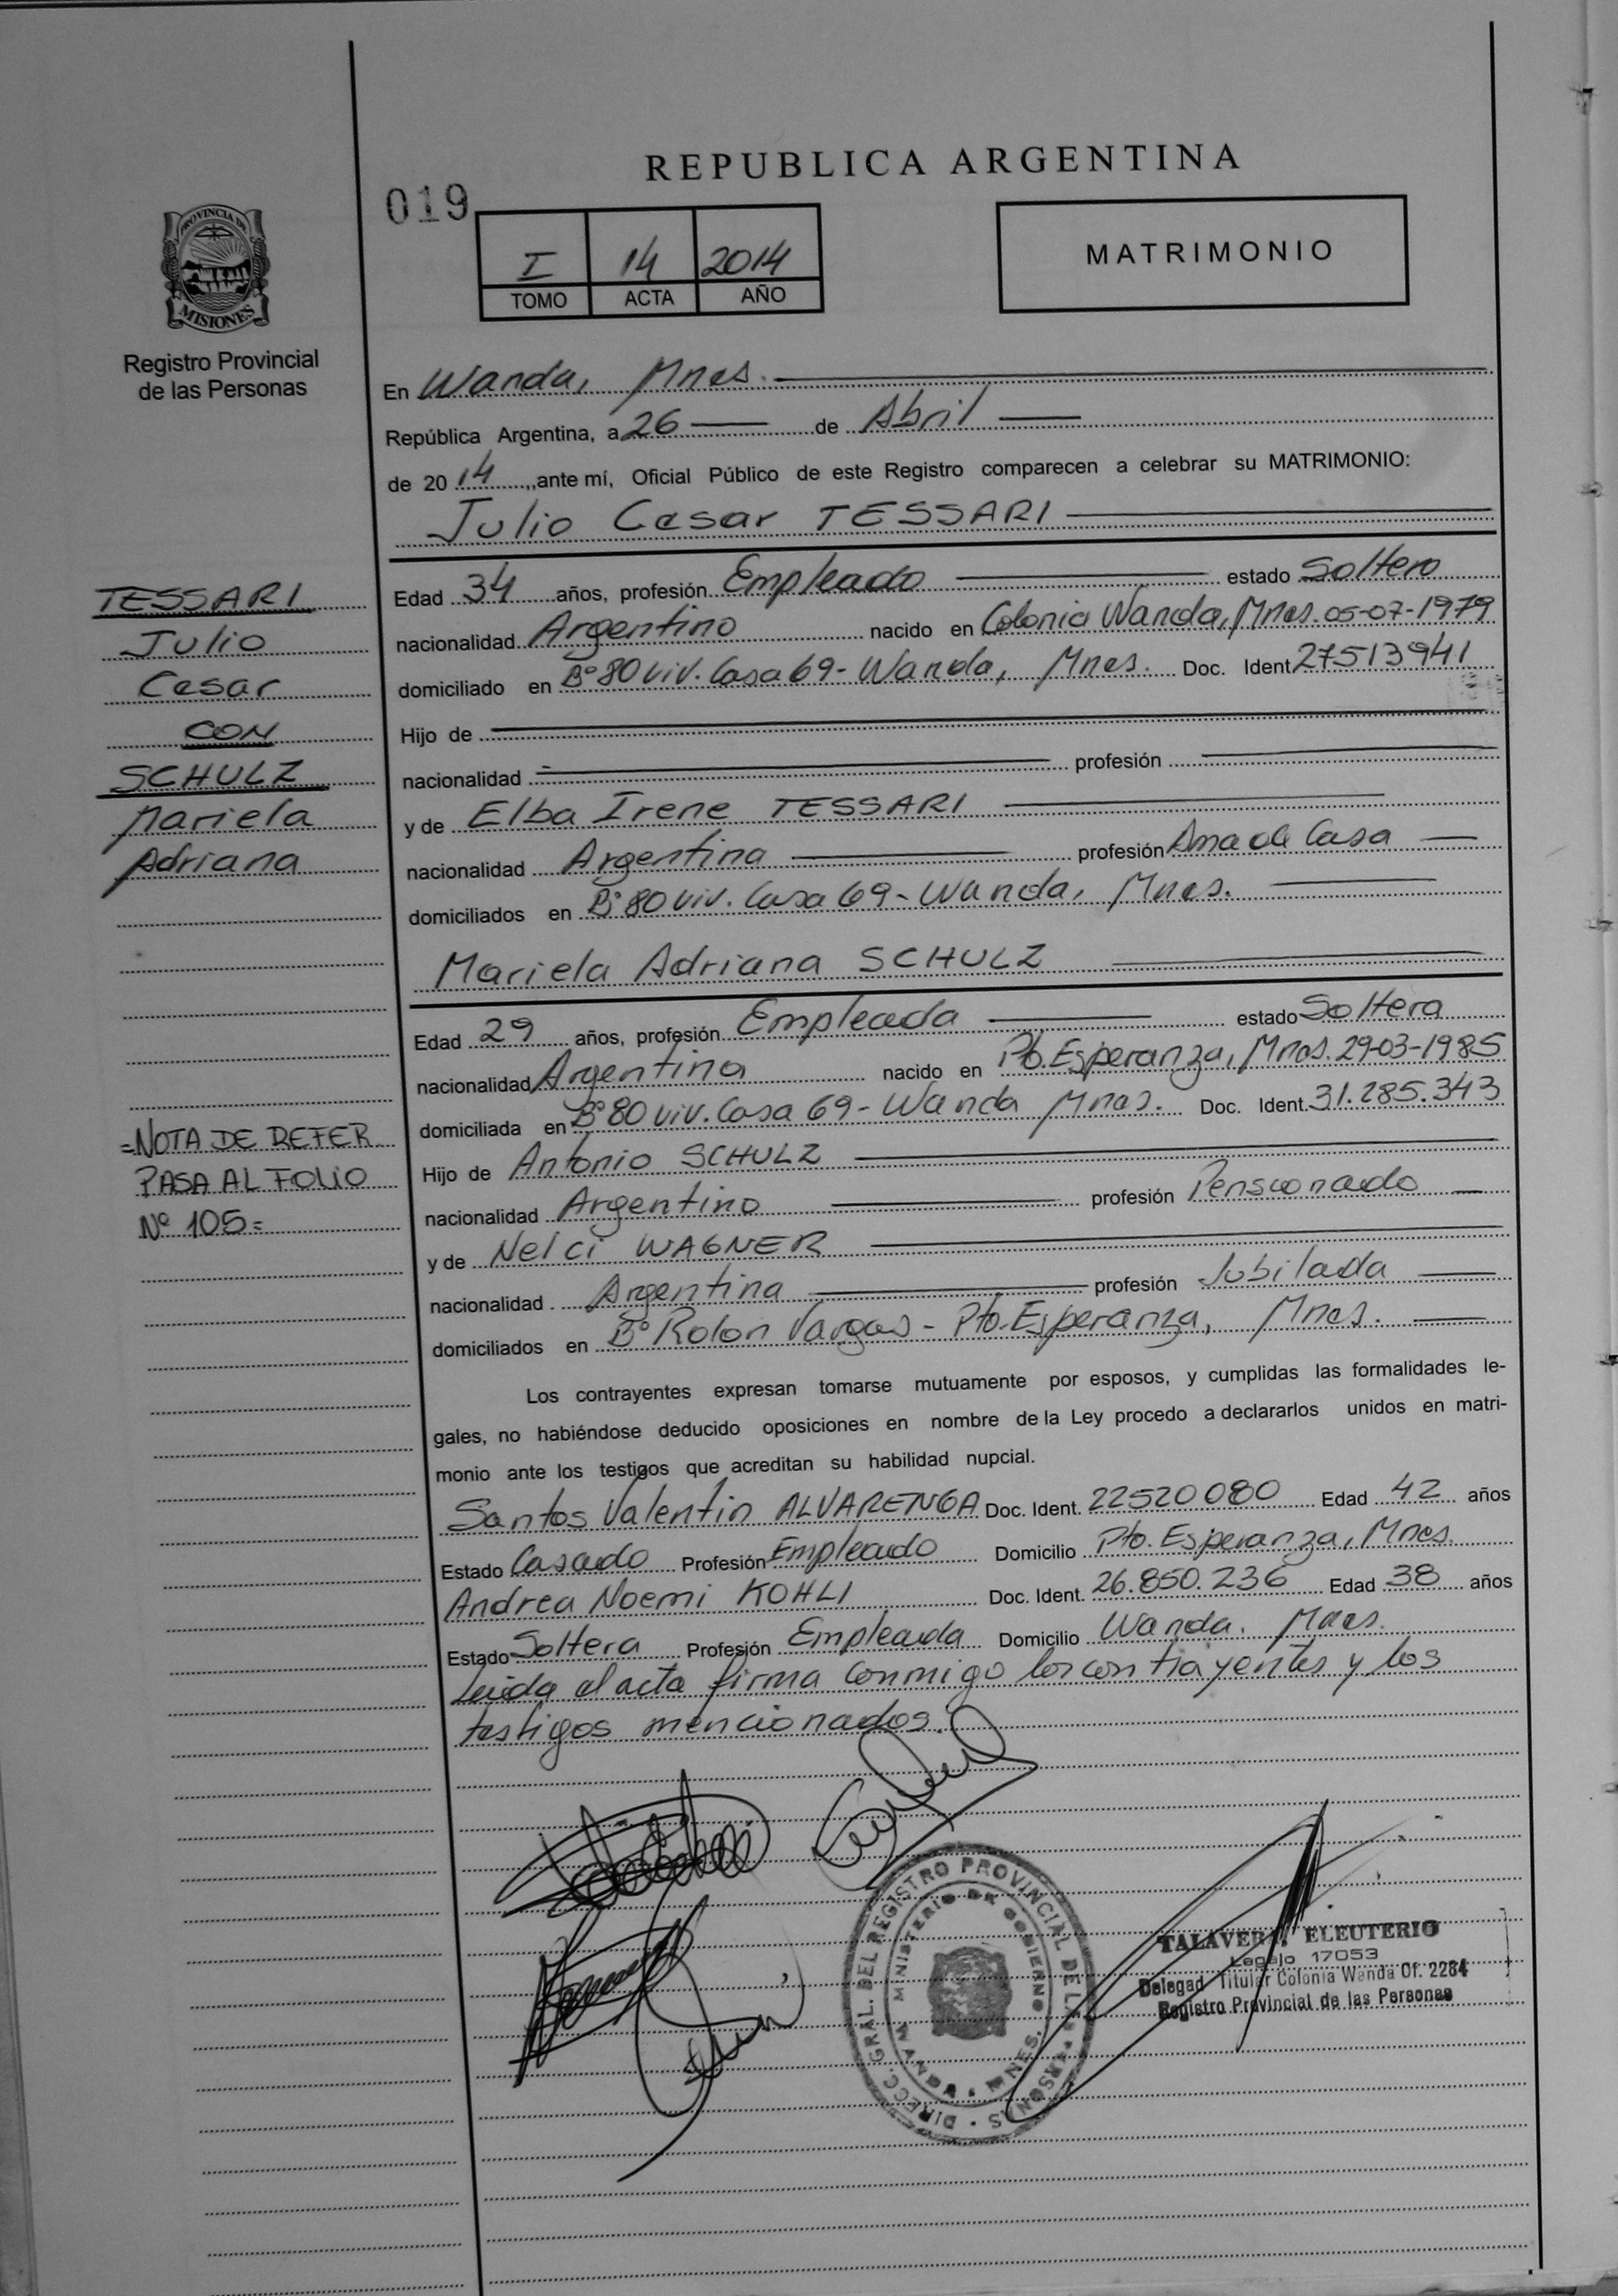 REPUBLICA ARGENTINA
019
I 14 2014
TOMO ACTA AÑO
MATRIMONIO
PROVINCIA DE
MISIONES
Registro Provincial
de las Personas
En Wanda, Mnes.
República Argentina, a 26 de Abril
de 2014, ante mí, Oficial Público de este Registro comparecen a celebrar su MATRIMONIO:
Julio Cesar TESSARI
TESSARI
Julio
Cesar
CON
SCHULZ
Mariela
Adriana
Edad 34 años, profesión Empleado estado Soltero
nacionalidad Argentino nacido en Colonia Wanda, Mnes. 05-07-1979
domiciliado en B° 80 viv. Casa 69 - Wanda, Mnes. Doc. Ident 27513941
Hijo de
nacionalidad profesión
y de Elba Irene TESSARI
nacionalidad Argentina profesión Ama de Casa
domiciliados en B° 80 viv. Casa 69 - Wanda, Mnes.
Mariela Adriana SCHULZ
Edad 29 años, profesión Empleada estado Soltera
nacionalidad Argentina nacido en Pto. Esperanza, Mnes. 29-03-1985
domiciliada en B° 80 viv. Casa 69 - Wanda Mnes. Doc. Ident. 31.285.343
Hijo de Antonio SCHULZ
nacionalidad Argentino profesión Pensionado
y de Nelci WAGNER
nacionalidad Argentina profesión Jubilada
domiciliados en B° Rolon Vargas - Pto. Esperanza, Mnes.
=NOTA DE REFER
PASA AL FOLIO
N° 105=
Los contrayentes expresan tomarse mutuamente por esposos, y cumplidas las formalidades le-
gales, no habiéndose deducido oposiciones en nombre de la Ley procedo a declararlos unidos en matri-
monio ante los testigos que acreditan su habilidad nupcial.
Santos Valentin ALVARENGA Doc. Ident. 22520080 Edad 42 años
Estado Casado Profesión Empleado Domicilio Pto. Esperanza, Mnes.
Andrea Noemi KOHLI Doc. Ident. 26.850.236 Edad 38 años
Estado Soltera Profesión Empleada Domicilio Wanda. Mnes.
Leida el acta firma conmigo los contrayentes y los
testigos mencionados.
DIRECC. GRAL. DEL REGISTRO PROVINCIAL DE LAS PERSONAS
MINISTERIO DE GOBIERNO
WANDA MNES.
TALAVERA ELEUTERIO
Legajo 17053
Delegad Titular Colonia Wanda Of. 2284
Registro Provincial de las Personas